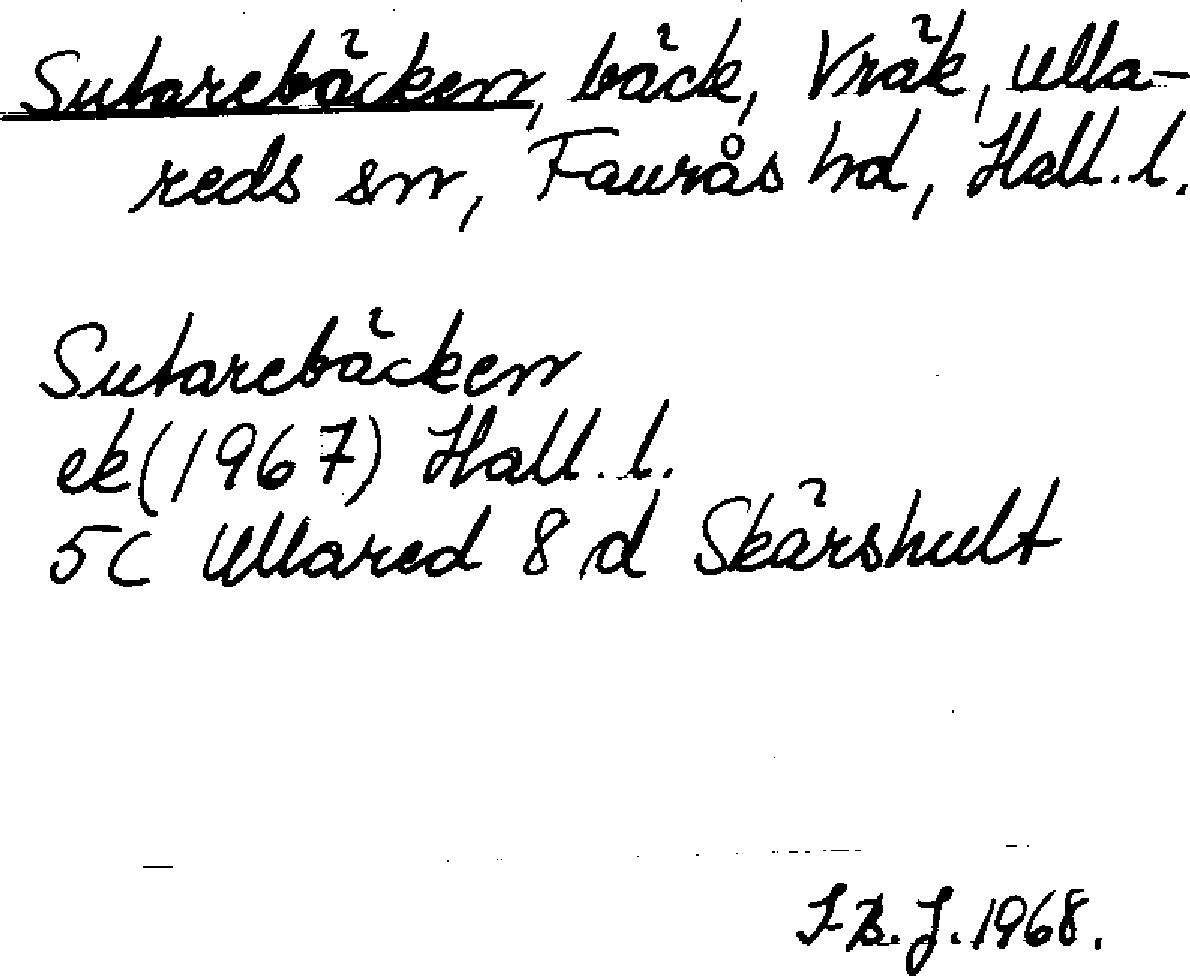 Sutarebäcken, bäck, Vräk, Ulla-
reds sn, Faurås hd, Hall. l.
Sutarebäcken
ek (1967) Hall. l.
5C Ullared 8 d Skärshult
I-B. J. 1968.